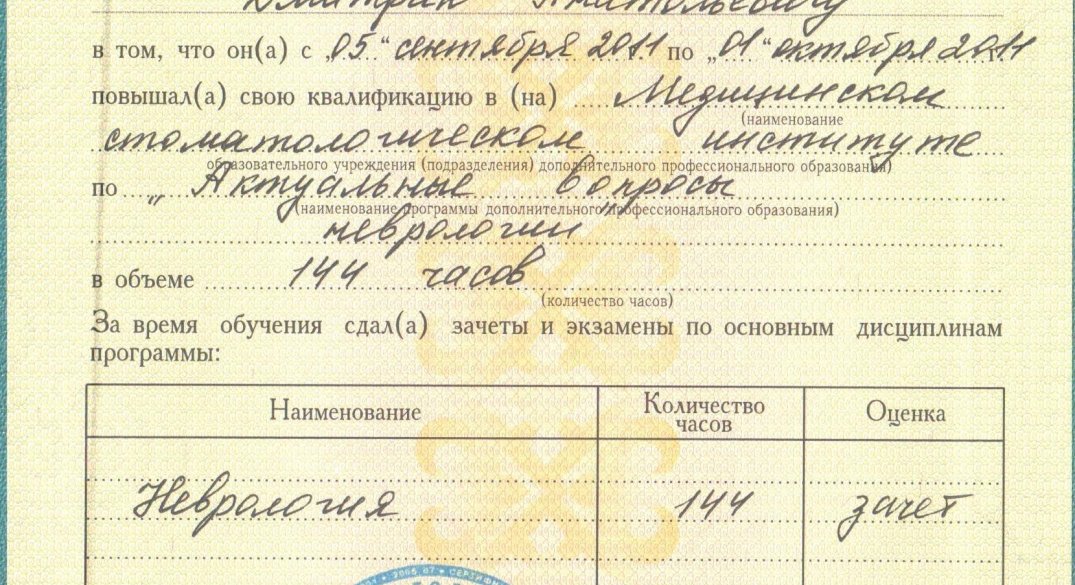 Дмитрию Анатольевичу
в том, что он(а) с „05“ сентября 2011 по „01“ октября 2011
повышал(а) свою квалификацию в (на) Медицинском
(наименование
стоматологическом институте
образовательного учреждения (подразделения) дополнительного профессионального образования)
по „Актуальные вопросы
(наименование программы дополнительного профессионального образования)
неврологии“
в объеме 144 часов
(количество часов)
За время обучения сдал(а) зачеты и экзамены по основным дисциплинам
программы:
Наименование Количество часов Оценка
Неврология 144 зачет